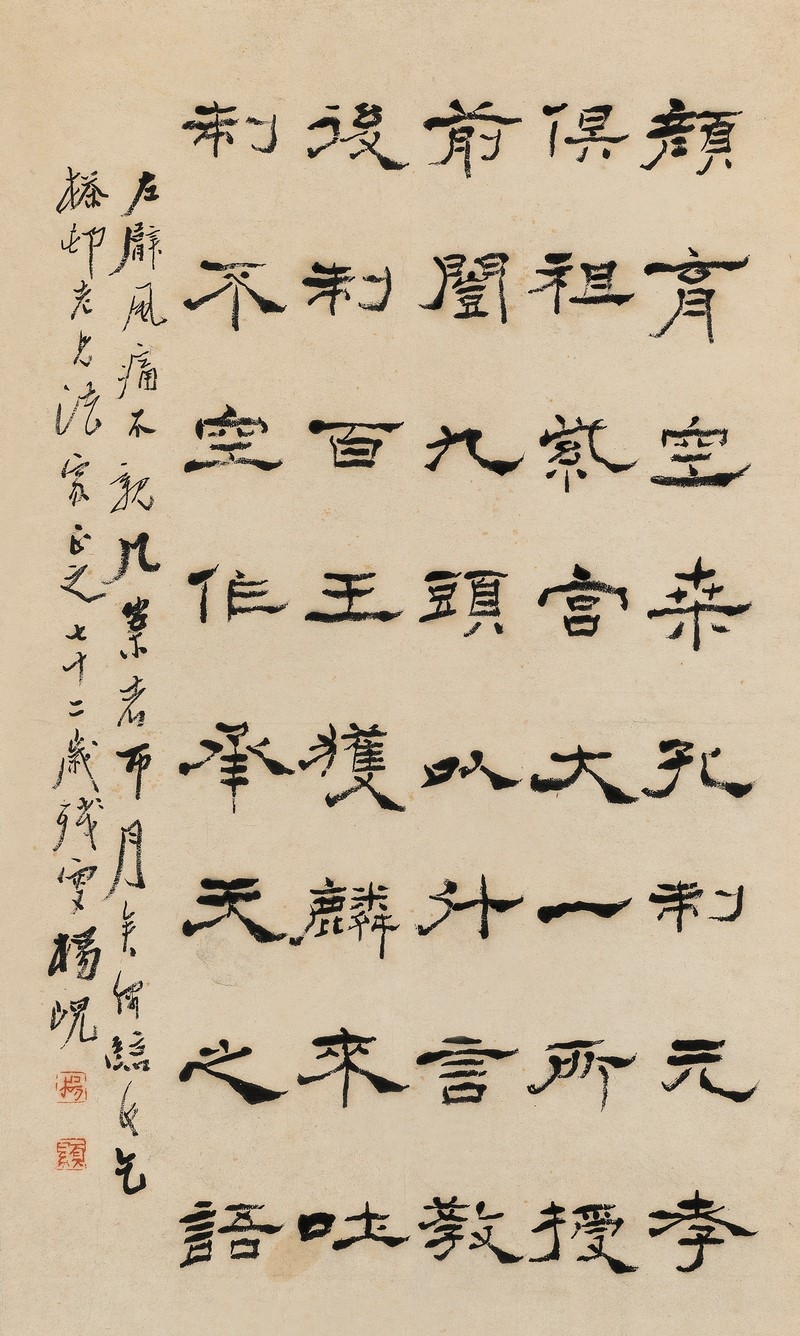 顏育空桒孔制元孝
俱祖紫宮大一所授
前闓九頭以什言敎
後制百王獲麟來吐
制不空作承天之語
左臂風痛不親几案者帀月矣偶臨此乞
老兄法家正之七十二歲殘叟楊峴